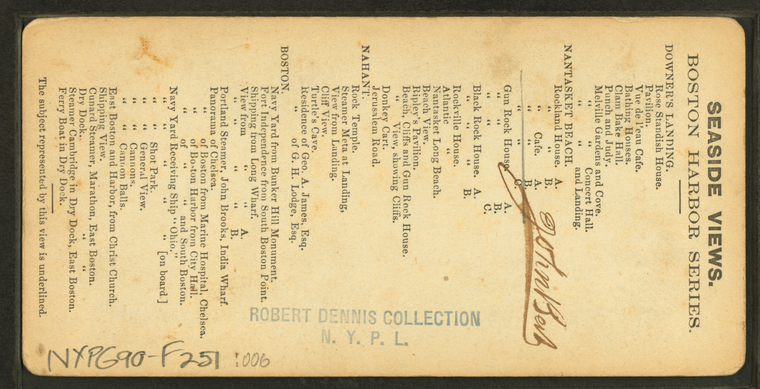 SEASIDE VIEWS.
BOSTON HARBOR SERIES.
DOWNER'S LANDING.
Rose Standish House.
Pavilion.
Vue de l'eau Cafe.
Bathing Houses.
Clam Bake Hall.
Punch and Judy.
Melville Gardens and Cove.
" " Concert Hall.
" " and Landing.
NANTASKET BEACH.
Rockland House. A.
" " B.
" Cafe. A.
" " B.
" " C.
Gun Rock House. A.
" " " B.
" " " C.
Black Rock House. A.
" " " B.
Rockville House.
Atlantic "
Nantasket Long Beach.
Beach View.
Ripley's Pavilion.
Beach, Cliffs and Gun Rock House.
" View, showing Cliffs.
Donkey Cart.
Jerusalem Road.
NAHANT.
Rock Temple.
Steamer Meta at Landing.
View from Landing.
Cliff View.
Turtle's Cave.
Residence of Geo. A. James, Esq.
" of G. H. Lodge, Esq.
BOSTON.
Navy Yard from Bunker Hill Monument.
Fort Independence from South Boston Point.
Shipping from Long Wharf.
View from " " A.
" " " " B.
Portland Steamer, John Brooks, India Wharf.
Panorama of Chelsea.
" of Boston from Marine Hospital, Chelsea.
" of Boston Harbor from City Hall.
" " " and South Boston.
Navy Yard Receiving Ship "Ohio."
" " " " [on board]
" " Shot Park.
" " General View.
" " Cannons.
" " Cannon Balls.
East Boston and Harbor, from Christ Church.
Shipping View.
Cunard Steamer, Marathon, East Boston.
Dry Dock, " "
Steamer Cambridge, in Dry Dock, East Boston.
Ferry Boat in Dry Dock.
The subject represented by this view is underlined.
John
ROBERT DENNIS COLLECTION
N. Y. P. L.
NYPG90-F251 :006